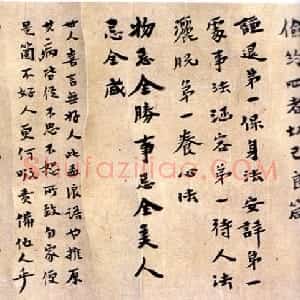 四者切己良箴
謙退第一保身法安詳第一
處事法涵容第一待人法
灑脫第一養心法
物忌全勝事忌全美人
忌全盛
世人喜言無好人此孟浪語也推原
其病皆從不忠不恕所致自家便
是箇不好人更何暇責備他人乎